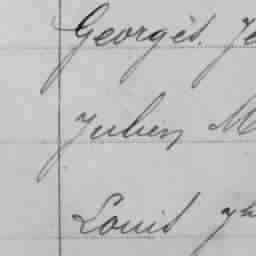 Georges. Je
Julien M
Louis